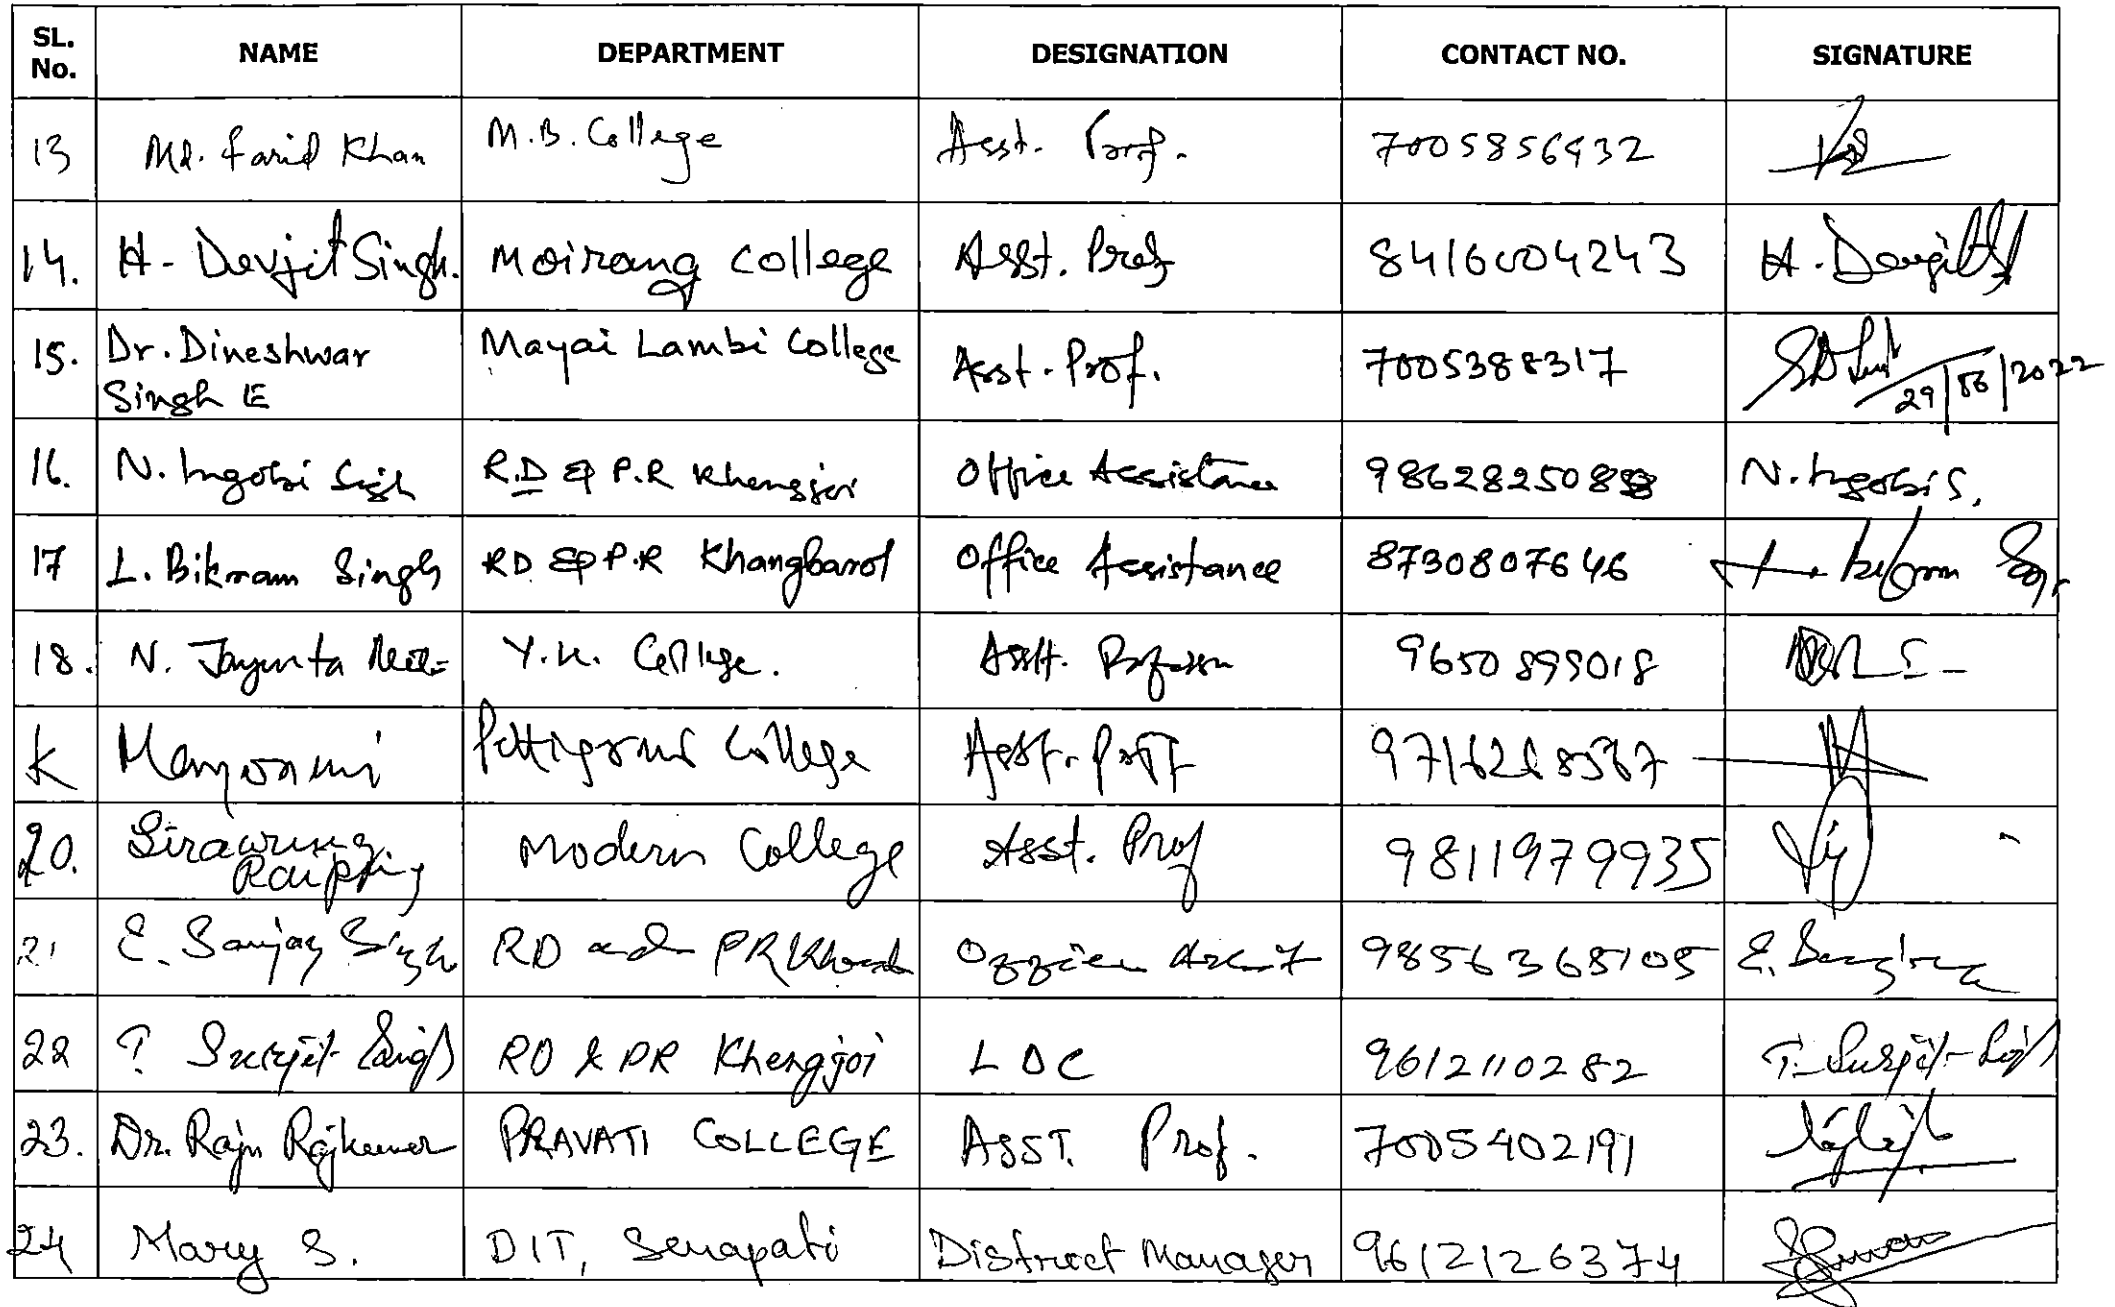 SL. No. NAME DEPARTMENT DESIGNATION CONTACT NO. SIGNATURE
13 Md. Farid Khan M.B. College Asst. Prof. 7005856932
14. H. Devjit Singh. Moirang College Asst. Prof 8416004243 H. Devjit
15. Dr. Dineshwar Mayai Lambi College Asst. Prof. 7005388317
Singh E 29/06/2022
16. N. Ingobi Singh R.D & P.R Khengjoi Office Assistance N. Ingobi S.
17 L. Bikram Singh RD & P.R Khangbarol Office Assistance 8730807646
18. N. Jayenta College. Asstt. Professor
K College Asst. Proff
20. Modern College Asst. Prof 9811979935
21 E. Sanjay Singh RD and PR 9856365105
22 T. Surjit Singh RD & PR Khengjoi LDC 9612110282 T. Surjit
23. Dr. Raju Rajkumar PRAVATI COLLEGE ASST. Prof. 7005402191
24 Mary S. DIT, Senapati District Manager 9612126374